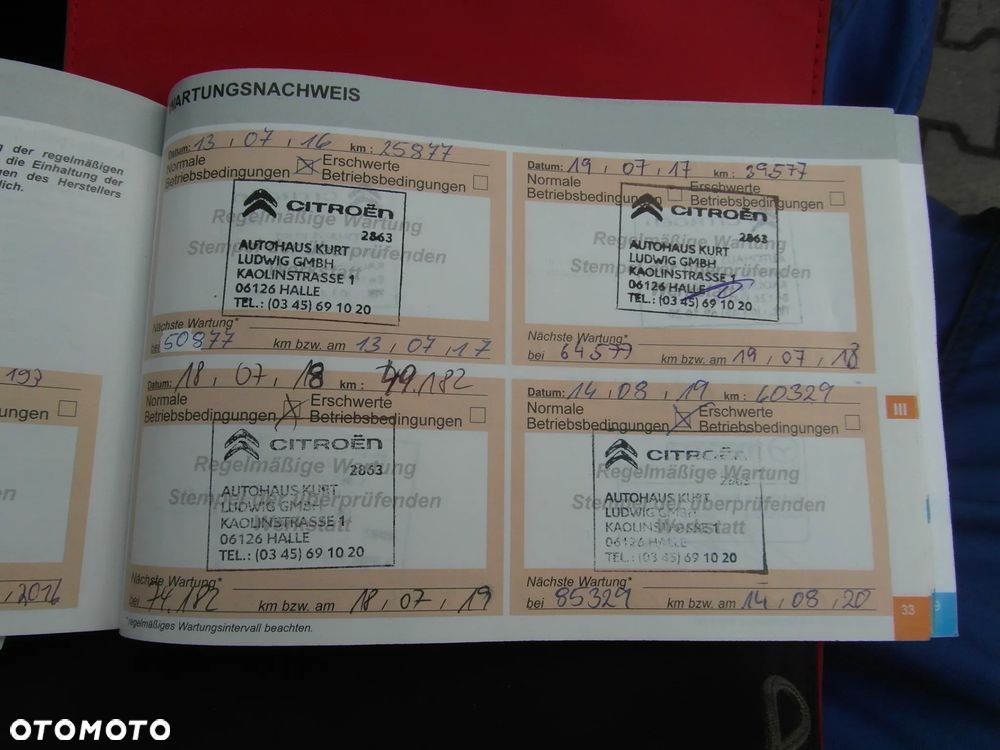 WARTUNGSNACHWEIS
g der regelmäßigen
die Einhaltung der
gen des Herstellers
lich.
193
ungen
2016
Datum: 13,07,16 km: 25877
Normale Betriebsbedingungen
Erschwerte Betriebsbedingungen
Regelmäßige Wartung
Stempel der überprüfenden
Werkstatt
CITROËN
2863
AUTOHAUS KURT
LUDWIG GMBH
KAOLINSTRASSE 1
06126 HALLE
TEL.: (03 45) 69 10 20
Nächste Wartung*
bei 50877 km bzw. am 13,07,17
Datum: 19,07,17 km: 39577
Normale Betriebsbedingungen
Erschwerte Betriebsbedingungen
Regelmäßige Wartung
Stempel der überprüfenden
Werkstatt
CITROËN
2863
AUTOHAUS KURT
LUDWIG GMBH
KAOLINSTRASSE 1
06126 HALLE
TEL.: (03 45) 69 10 20
Nächste Wartung*
bei 64577 km bzw. am 19,07,18
Datum: 18,07,18 km: 49,182
Normale Betriebsbedingungen
Erschwerte Betriebsbedingungen
Regelmäßige Wartung
Stempel der überprüfenden
Werkstatt
CITROËN
2863
AUTOHAUS KURT
LUDWIG GMBH
KAOLINSTRASSE 1
06126 HALLE
TEL.: (03 45) 69 10 20
Nächste Wartung*
bei 74,182 km bzw. am 18,07,19
Datum: 14,08,19 km: 60329
Normale Betriebsbedingungen
Erschwerte Betriebsbedingungen
Regelmäßige Wartung
Stempel der überprüfenden
Werkstatt
CITROËN
2863
AUTOHAUS KURT
LUDWIG GMBH
KAOLINSTRASSE 1
06126 HALLE
TEL.: (03 45) 69 10 20
Nächste Wartung*
bei 85329 km bzw. am 14,08,20
*regelmäßiges Wartungsintervall beachten.
III
33
OTOMOTO